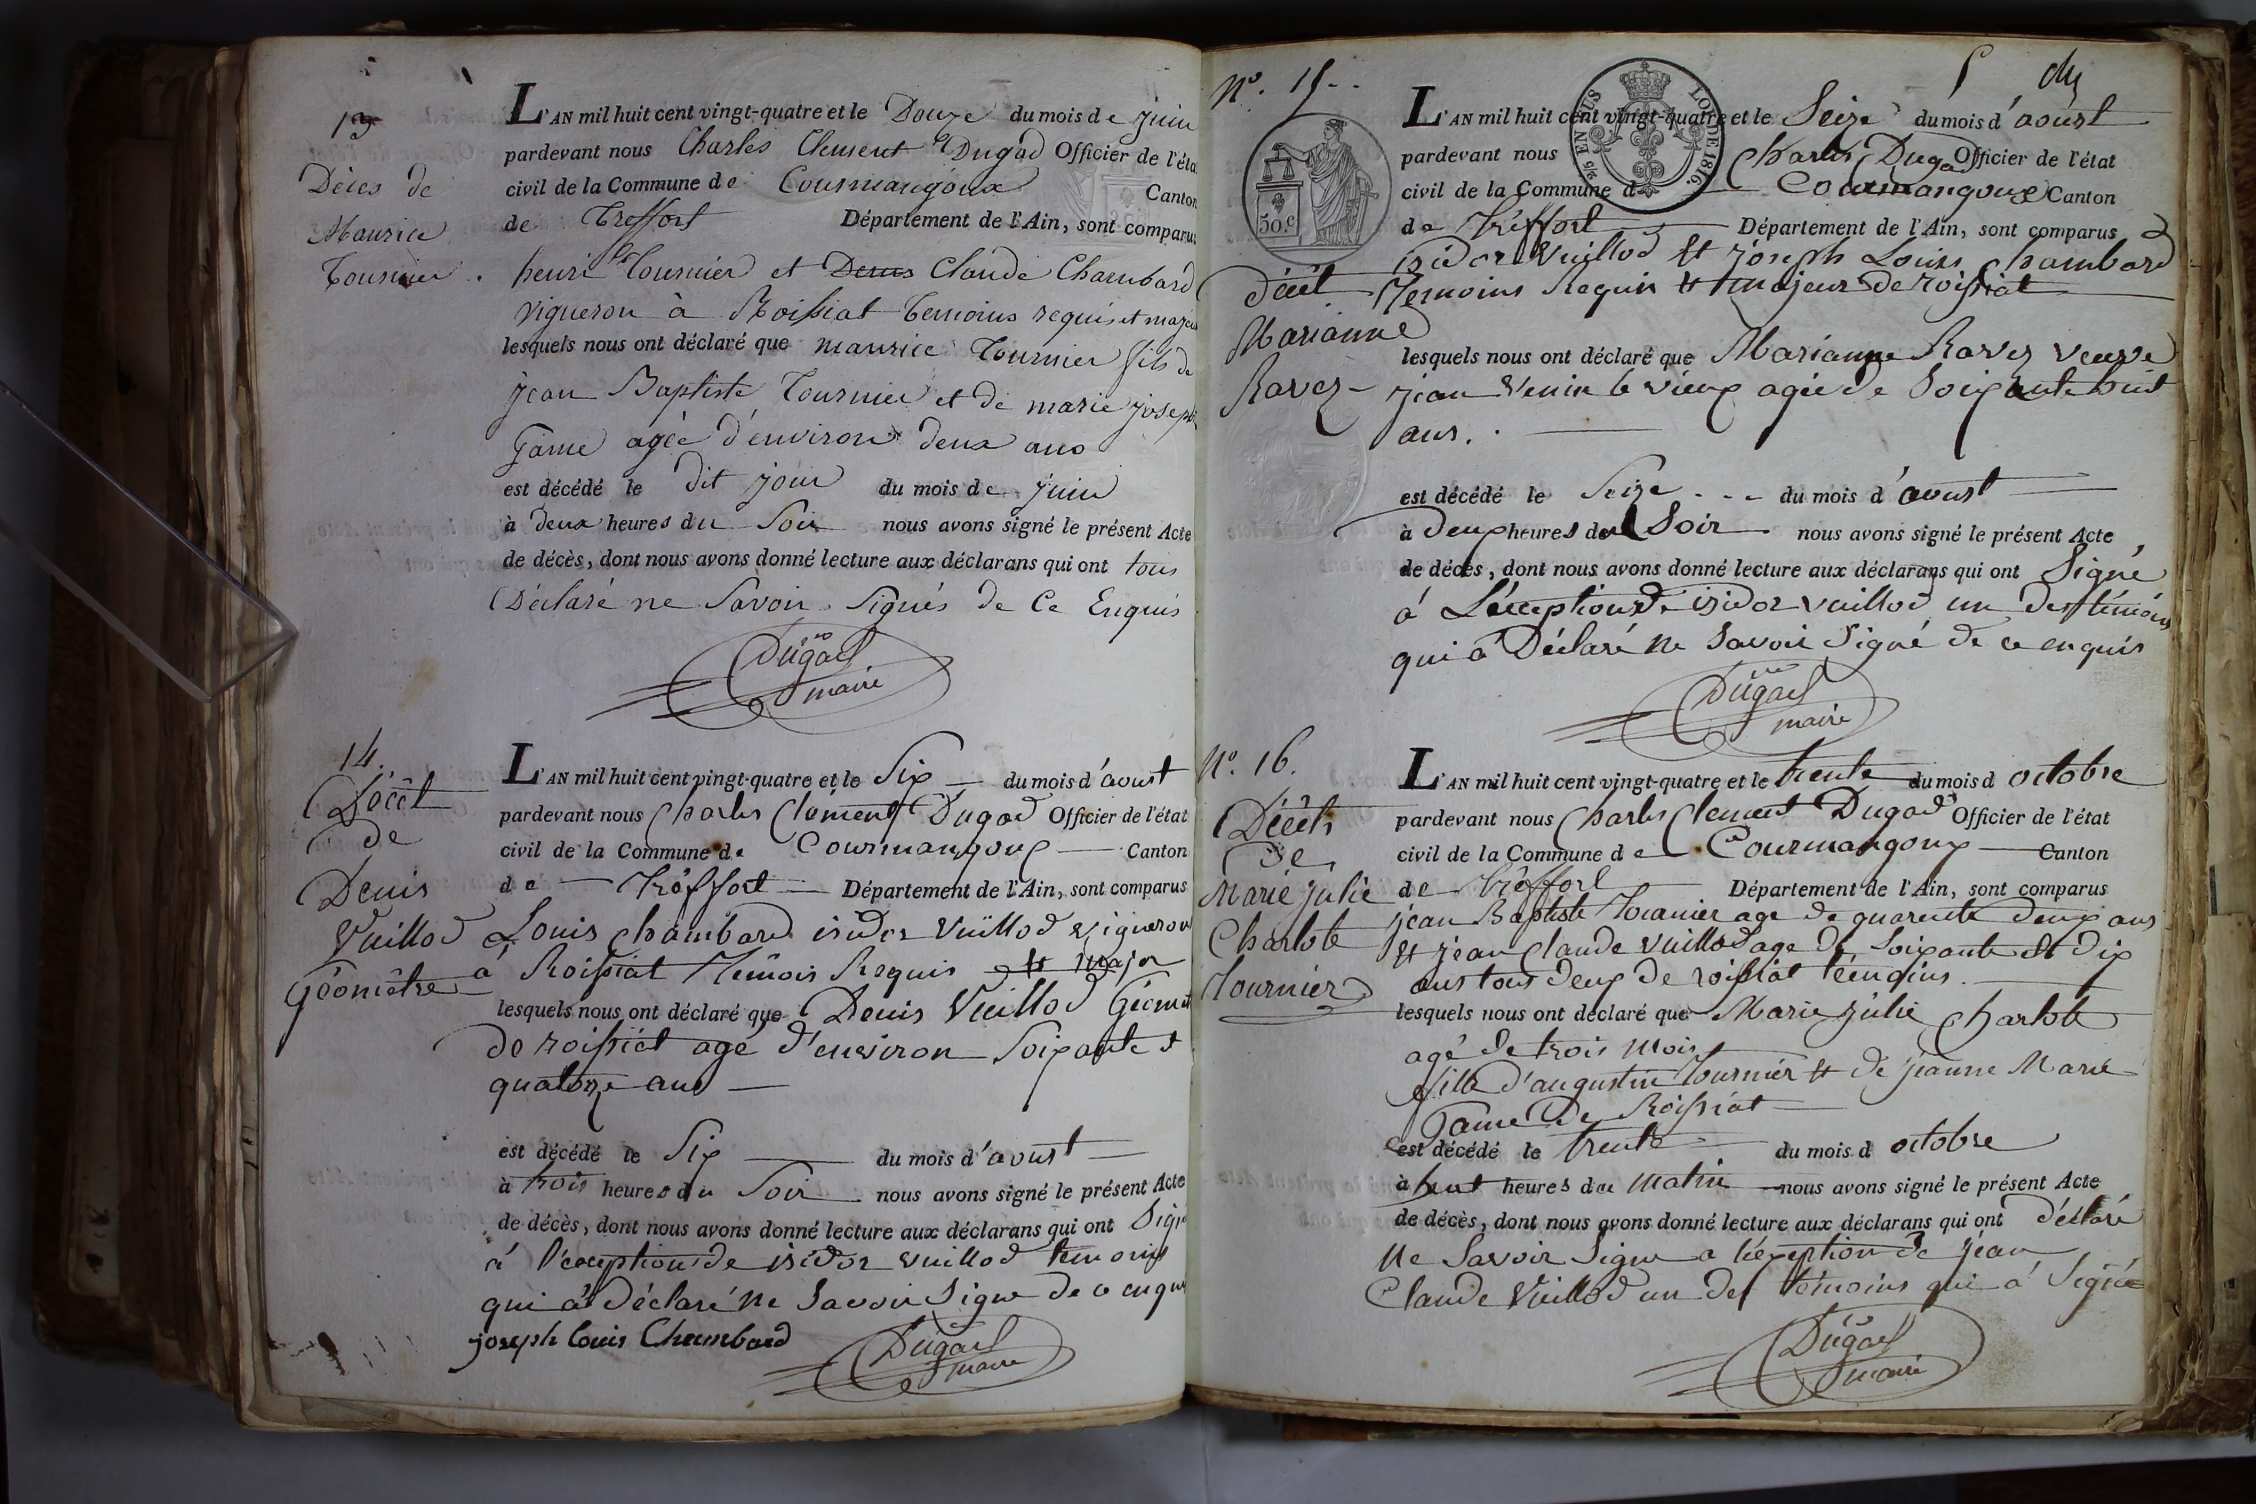 13
Déces de
Maurice
Tournier .
L'AN mil huit cent vingt-quatre et le Douze du mois de juin
pardevant nous Charles Clement Dugad Officier de l'éta
civil de la Commune de Courmangoux Canton
de Treffort Département de l'Ain, sont comparus
henri Tournier et Denis Claude Chambard
vigneron à Roissiat temoins requis et majeu
lesquels nous ont déclaré que maurice Tournier fils de
jean Baptiste Tournier et de marie joseph
Game agée d'environ deux ans
est décédé le dit jour du mois de juin
à deux heures du Soir nous avons signé le présent Acte
de décès, dont nous avons donné lecture aux déclarans qui ont tous
Déclaré ne Savoir Signés de Ce Enquis
Dugad
maire
14.
Décèt
de
Denis
Vuillod
Géomètre
L'AN mil huit cent vingt-quatre et le Six du mois d'aoust
pardevant nous Charles Clément Dugad Officier de l'état
civil de la Commune de Courmangoux Canton
de Tréffort Département de l'Ain, sont comparus
Louis Chambard isidor Vuillod vigneron
à Roissiat Témois Requis et Major
lesquels nous ont déclaré que Denis Vuillod Géomet
de roissiat agé d'environ Soixante et
quatorze ans
est décédé le Six du mois d'aoust
à trois heures du Soir nous avons signé le présent Acte
de décès, dont nous avons donné lecture aux déclarans qui ont Signé
à l'éxception de isidor vuillod temoins
qui à Déclaré ne Savoir Signe de ce enquis
joseph louis Chambard
Dugad
maire
5
N°. 15..
LOI DE 1816.
50.c
Décèt
Marianne
Ravez
L'AN mil huit cent vingt-quatre et le Seize du mois d'aoust
pardevant nous Charles Dugad Officier de l'état
civil de la Commune de Courmangoux Canton
de Tréffort Département de l'Ain, sont comparus
isidor Vuillod et joseph Louis Chambard
Temoins Requis et majeur de roissiat
lesquels nous ont déclaré que Marianne Ravez veuve
jean Venin le vieux agée de Soixante huit
ans.
est décédé le Seize du mois d'aoust
à deux heures du Soir nous avons signé le présent Acte
de décès, dont nous avons donné lecture aux déclarans qui ont Signé
á L'éxception de isidor vuillod un des témoins
qui à Déclaré ne Savoir Signé de ce enquis
Dugad
maire
N°. 16.
Décèts
De
Marie julie
Charlote
Tournier
L'AN mil huit cent vingt-quatre et le trente du mois d octobre
pardevant nous Charles Clement Dugad Officier de l'état
civil de la Commune de Courmangoux Canton
de Tréffort Département de l'Ain, sont comparus
jean Baptiste Tournier age de quarente deux ans
et jean Claude Vuillod age de Soixante et dix
ans tous deux de roissiat témoins
lesquels nous ont déclaré que Marie julie Charlote
agé de trois mois
fille d'augustin Tournier et de jeanne Marie
Game De Roissiat
est décédé le trente du mois d octobre
à huit heures du matin nous avons signé le présent Acte
de décès, dont nous avons donné lecture aux déclarans qui ont déclaré
Ne Savoir Signe a l'éxception de jean
Claude Vuillod un des témoins qui á Signé
Dugad
maire